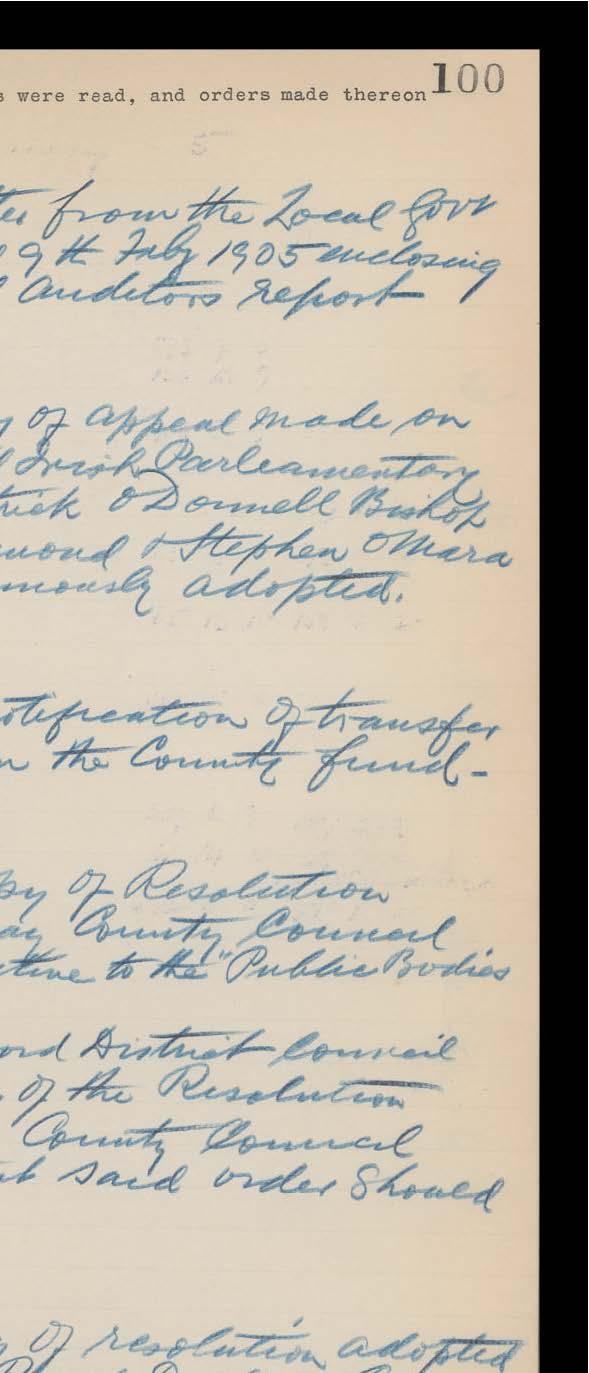 100
s were read, and orders made thereon
from the Local Govt
9th Feby 1905 enclosing
Auditors report
of appeal made on
Irish Parleamentary
trick O'Donnell Bishop
mond & Stephen O'Mara
mously adopted.
otification of transfer
the County fund-
py of Resolution
ay County Council
ative to the "Public Bodies
ord District Council
of the Resolution
County Council
said order should
of resolution adopted